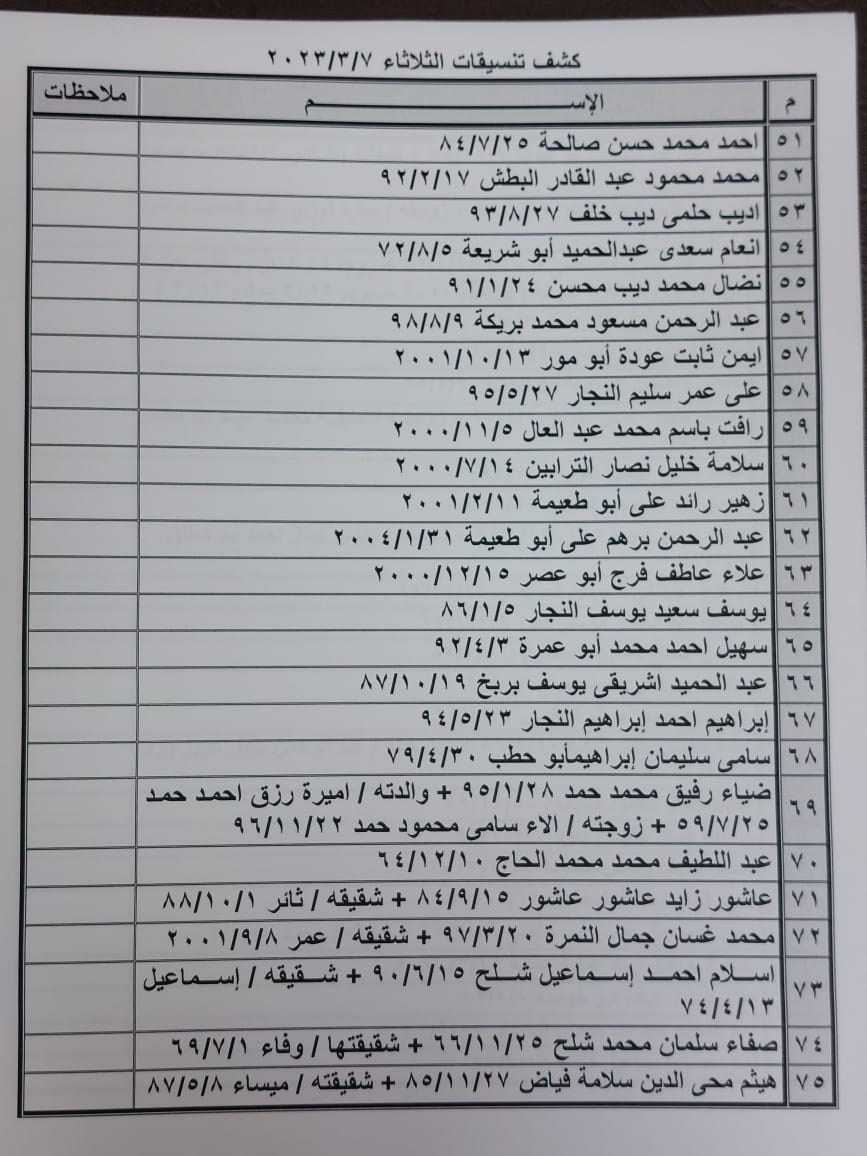 كشف تنسيقات الثلاثاء ٢٠٢٣/٣/٧
م الإســـــــــــم ملاحظات
٥١ احمد محمد حسن صالحة ٨٤/٧/٢٥
٥٢ محمد محمود عبد القادر البطش ٩٢/٢/١٧
٥٣ اديب حلمى ديب خلف ٩٣/٨/٢٧
٥٤ انعام سعدى عبدالحميد أبو شريعة ٧٢/٨/٥
٥٥ نضال محمد ديب محسن ٩١/١/٢٤
٥٦ عبد الرحمن مسعود محمد بريكة ٩٨/٨/٩
٥٧ ايمن ثابت عودة أبو مور ٢٠٠١/١٠/١٣
٥٨ على عمر سليم النجار ٩٥/٥/٢٧
٥٩ رافت باسم محمد عبد العال ٢٠٠٠/١١/٥
٦٠ سلامة خليل نصار الترابين ٢٠٠٠/٧/١٤
٦١ زهير رائد على أبو طعيمة ٢٠٠١/٢/١١
٦٢ عبد الرحمن برهم على أبو طعيمة ٢٠٠٤/١/٣١
٦٣ علاء عاطف فرج أبو عصر ٢٠٠٠/١٢/١٥
٦٤ يوسف سعيد يوسف النجار ٨٦/١/٥
٦٥ سهيل احمد محمد أبو عمرة ٩٢/٤/٣
٦٦ عبد الحميد اشريقى يوسف بربخ ٨٧/١٠/١٩
٦٧ إبراهيم احمد إبراهيم النجار ٩٤/٥/٢٣
٦٨ سامى سليمان إبراهيمأبو حطب ٧٩/٤/٣٠
٦٩ ضياء رفيق محمد حمد ٩٥/١/٢٨ + والدته / اميرة رزق احمد حمد
٥٩/٧/٢٥ + زوجته / الاء سامى محمود حمد ٩٦/١١/٢٢
٧٠ عبد اللطيف محمد محمد الحاج ٦٤/١٢/١٠
٧١ عاشور زايد عاشور عاشور ٨٤/٩/١٥ + شقيقه / ثائر ٨٨/١٠/١
٧٢ محمد غسان جمال النمرة ٩٧/٣/٢٠ + شقيقه / عمر ٢٠٠١/٩/٨
٧٣ اسلام احمد إسماعيل شلح ٩٠/٦/١٥ + شقيقه / إسماعيل
٧٤/٤/١٣
٧٤ صفاء سلمان محمد شلح ٦٦/١١/٢٥ + شقيقتها / وفاء ٦٩/٧/١
٧٥ هيثم محى الدين سلامة فياض ٨٥/١١/٢٧ + شقيقته / ميساء ٨٧/٥/٨